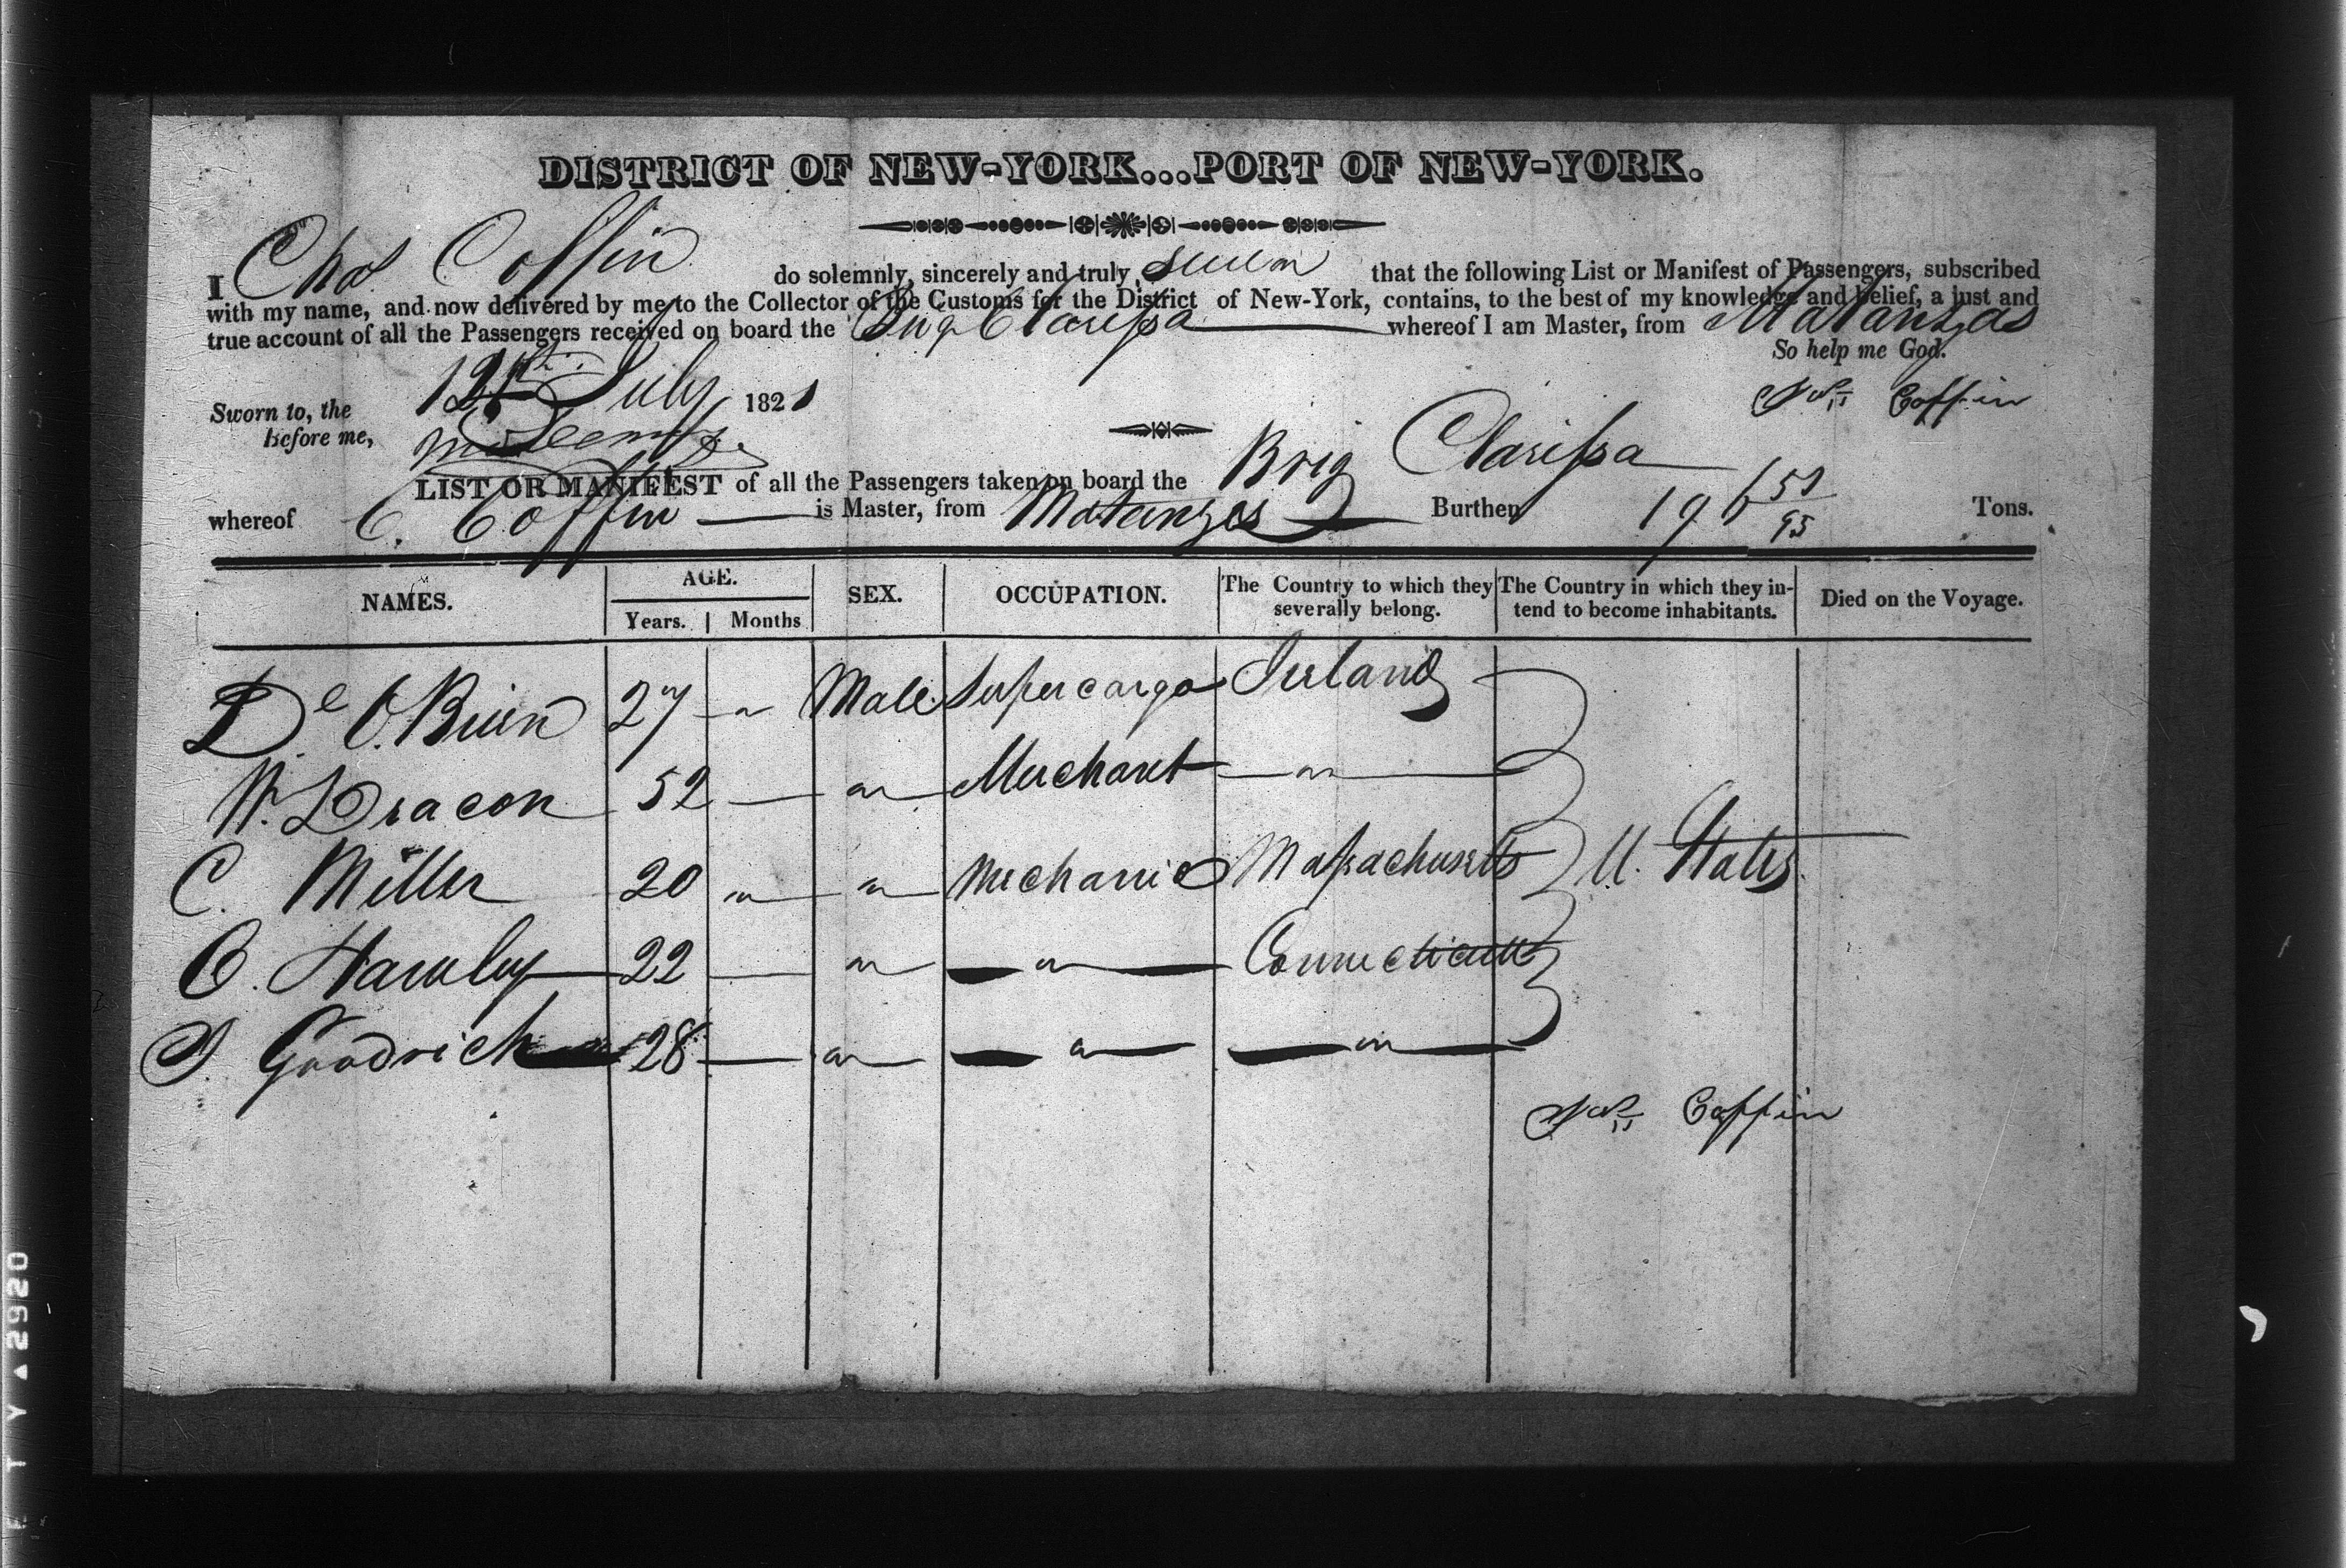 DISTRICT OF NEW-YORK...PORT OF NEW-YORK.
I Chas Coffin do solemnly, sincerely and truly swear that the following List or Manifest of Passengers, subscribed
with my name, and now delivered by me to the Collector of the Customs for the District of New-York, contains, to the best of my knowledge and belief, a just and
true account of all the Passengers received on board the Brig Clarissa whereof I am Master, from Matanzas
So help me God.
Sworn to, the July 1821 Coffin
before me,
LIST OR MANIFEST of all the Passengers taken on board the Brig Clarissa
whereof C. Coffin is Master, from Matanzas Burthen 196 51/95 Tons.
NAMES. AGE. Years. Months SEX. OCCUPATION. The Country to which they severally belong. The Country in which they intend to become inhabitants. Died on the Voyage.
De O.Brien 27 - " Male Supercargo Ireland
W. Deacon 52 — " Merchant — " —
C. Miller 20 " " Mechanic Massachusetts U. States
C. Hawley 22 — " — " — Connecticutt
S. Goodrich 28 — " — " — — " —
Coffin